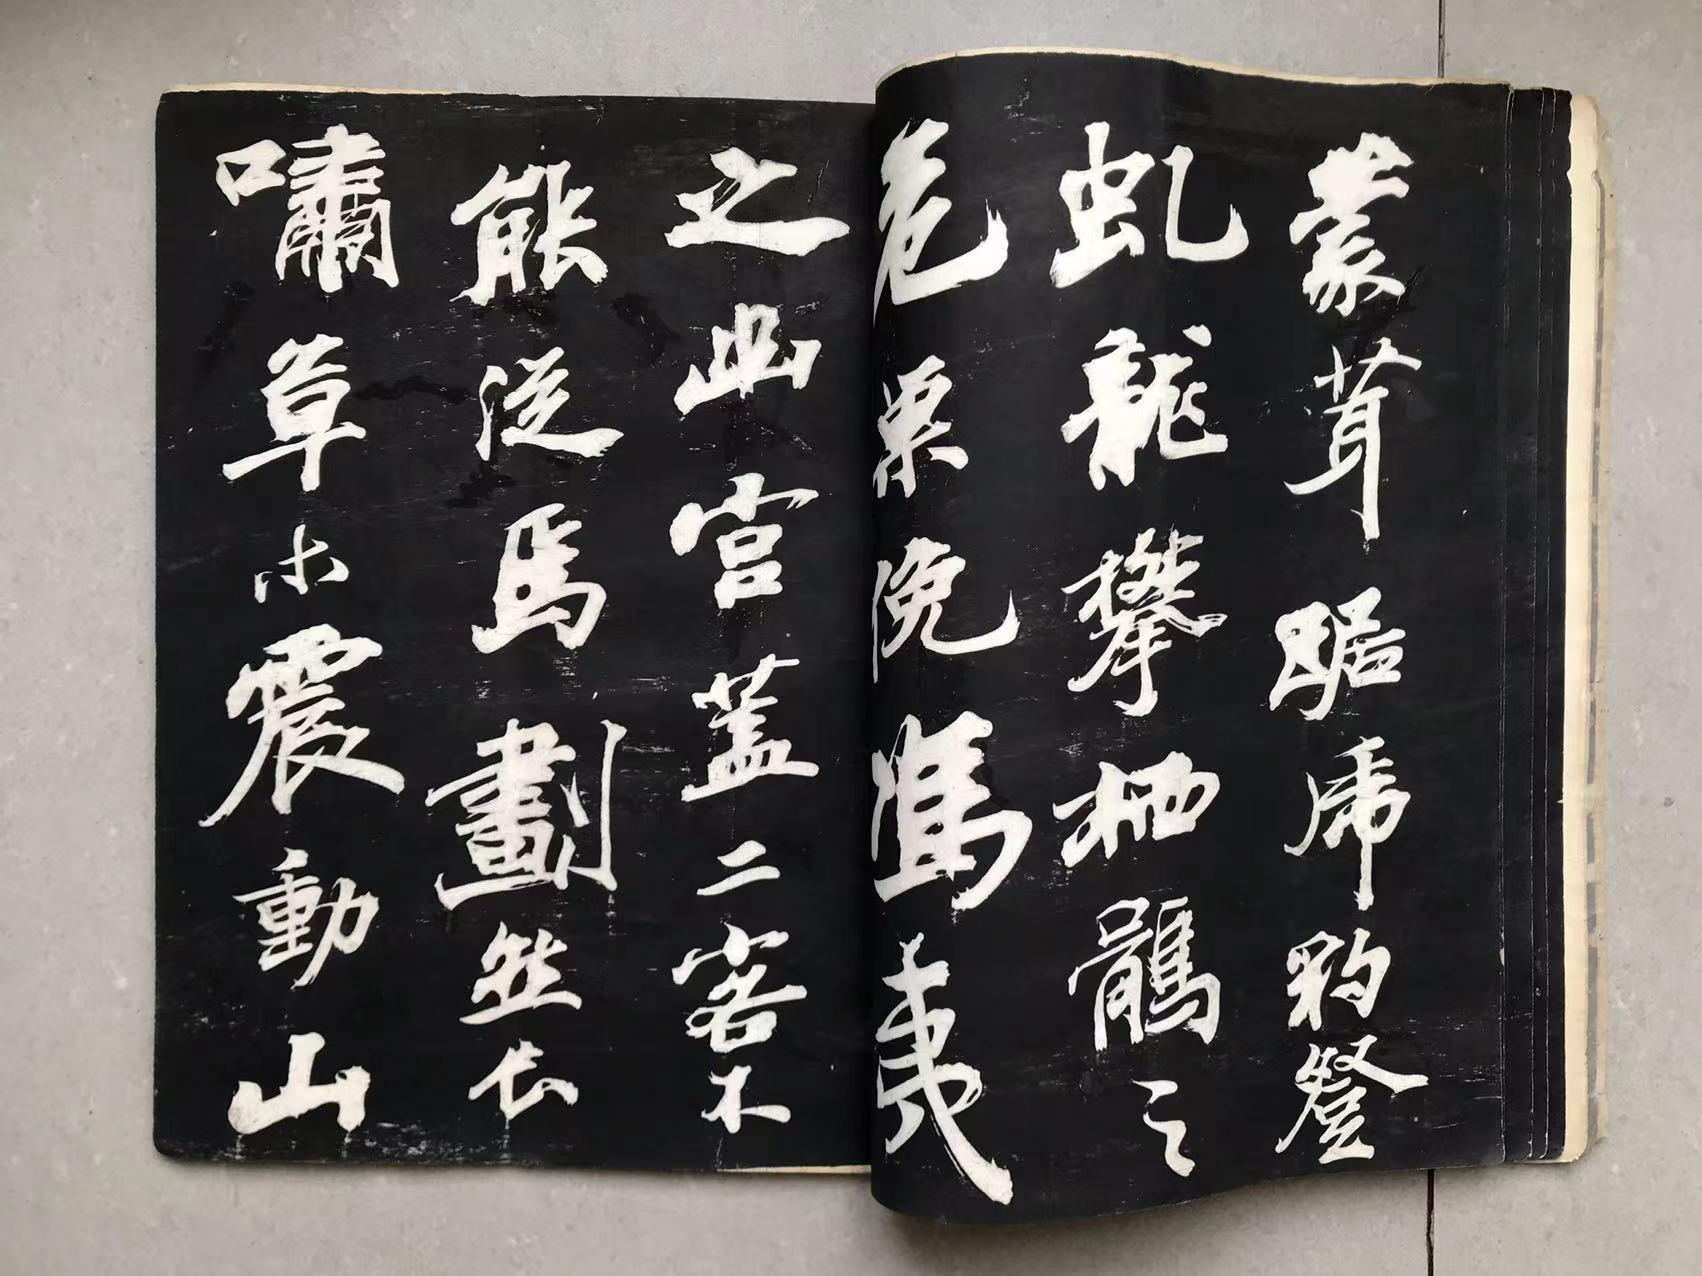 蒙茸踞虎豹登
虬龍攀栖鶻之
危巢俛馮夷
之幽宮蓋二客不
能從焉劃然長
嘯草木震動山